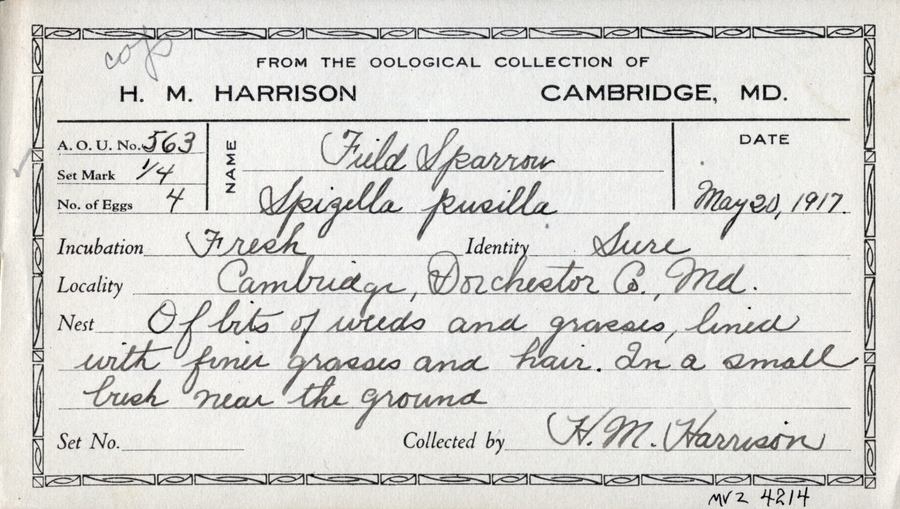 copy
FROM THE OOLOGICAL COLLECTION OF
H. M. HARRISON CAMBRIDGE, MD.
A. O. U. No. 563
Set Mark 1/4
No. of Eggs 4
NAME
Field Sparrow
Spizella pusilla
DATE
May 20, 1917.
Incubation Fresh Identity Sure
Locality Cambridge, Dorchestor Co., Md.
Nest Of bits of weeds and grasses, lined
with finer grasses and hair. In a small
bush near the ground
Set No. Collected by H. M. Harrison
MVZ 4214